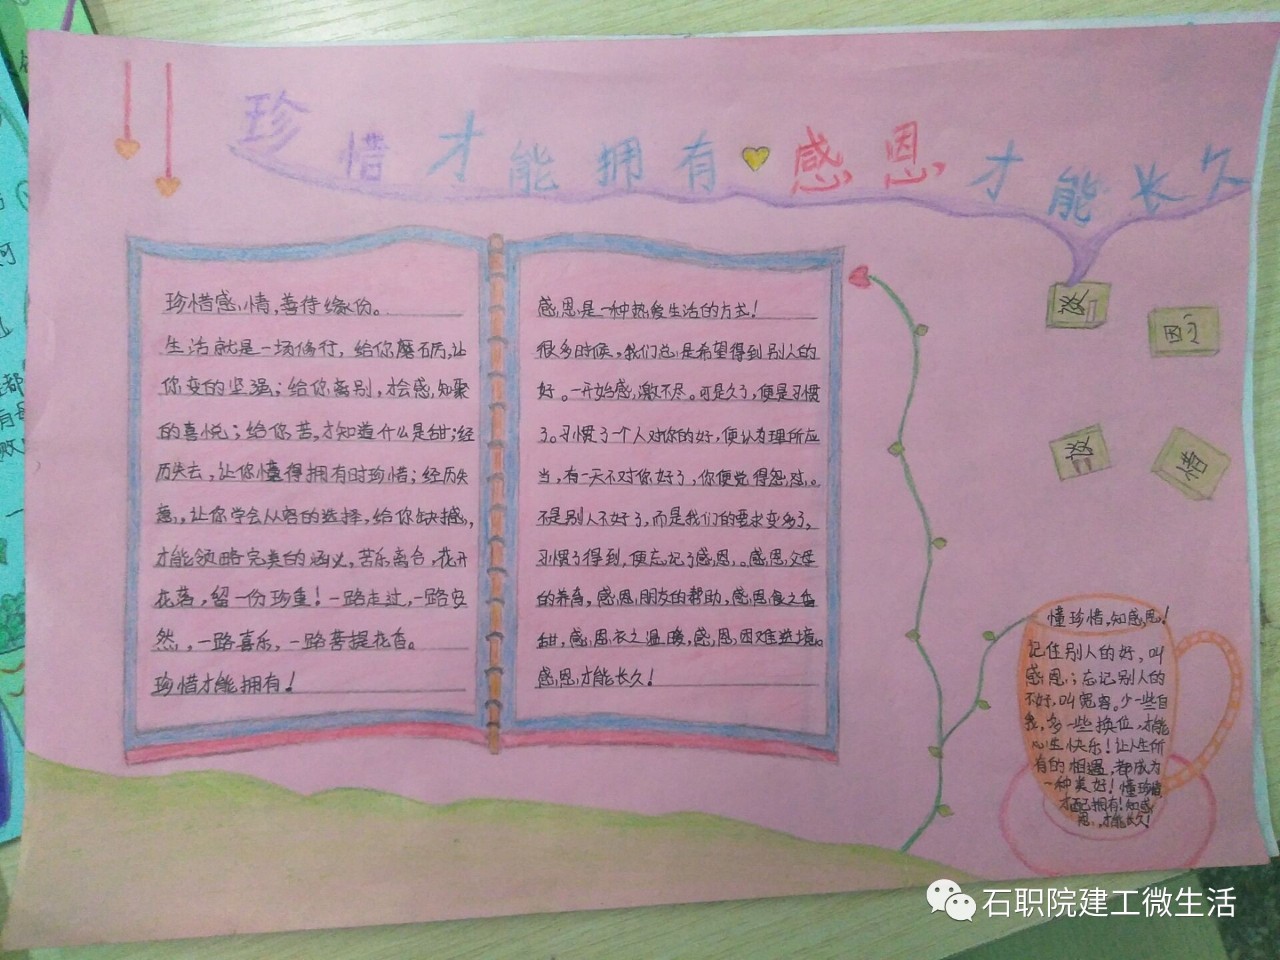 珍惜才能拥有 感恩才能长久
珍惜感情,善待缘份。
生活就是一场修行,给你磨石历,让
你变的坚强;给你离别,才会感知聚
的喜悦;给你苦,才知道什么是甜;经
历失去,让你懂得拥有时珍惜;经历失
意,让你学会从容的选择,给你缺撼,
才能领略完美的涵义,苦乐离合,花开
花落,留一份珍重!一路走过,一路安
然,一路喜乐,一路菩提花香。
珍惜才能拥有!
感恩是一种热爱生活的方式!
很多时候,我们总是希望得到别人的
好。一开始感激不尽。可是久了,便是习惯
了。习惯了一个人对你的好,便认为理所应
当,有一天不对你好了,你便觉得怨怼。
不是别人不好了,而是我们的要求变多了,
习惯了得到,便忘记了感恩。感恩父母
的养育,感恩朋友的帮助,感恩食之香
甜,感恩衣之温暖,感恩困难逆境。
感恩才能长久!
惜
懂珍惜,知感恩!
记住别人的好,叫
感恩;忘记别人的
不好,叫宽容。少一些自
我,多一些换位,才能
心生快乐!让人生所
有的相遇,都成为
一种美好!懂珍惜
才配拥有!知感
恩,才能长久!
石职院建工微生活